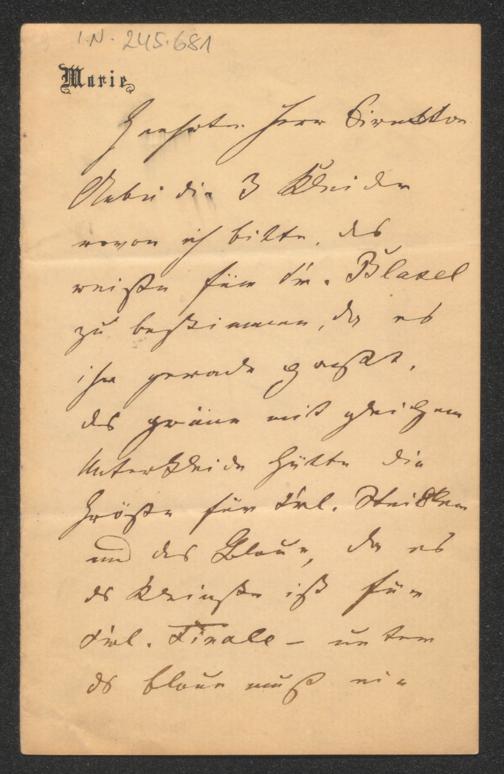 I.N. 245.681
Marie
Geehrter Herr Direktor
Anbei die 3 Kleider
wovon ich bitte, das
weiße für Fr. Blasel
zu bestimmen, da es
ihr gerade passt,
das grüne mit gleichem
Unterkleide hätte die
Größe für Frl.
und das Blaue, da es
das kleinste ist für
Frl. Tirale – unter
das blaue muß ein